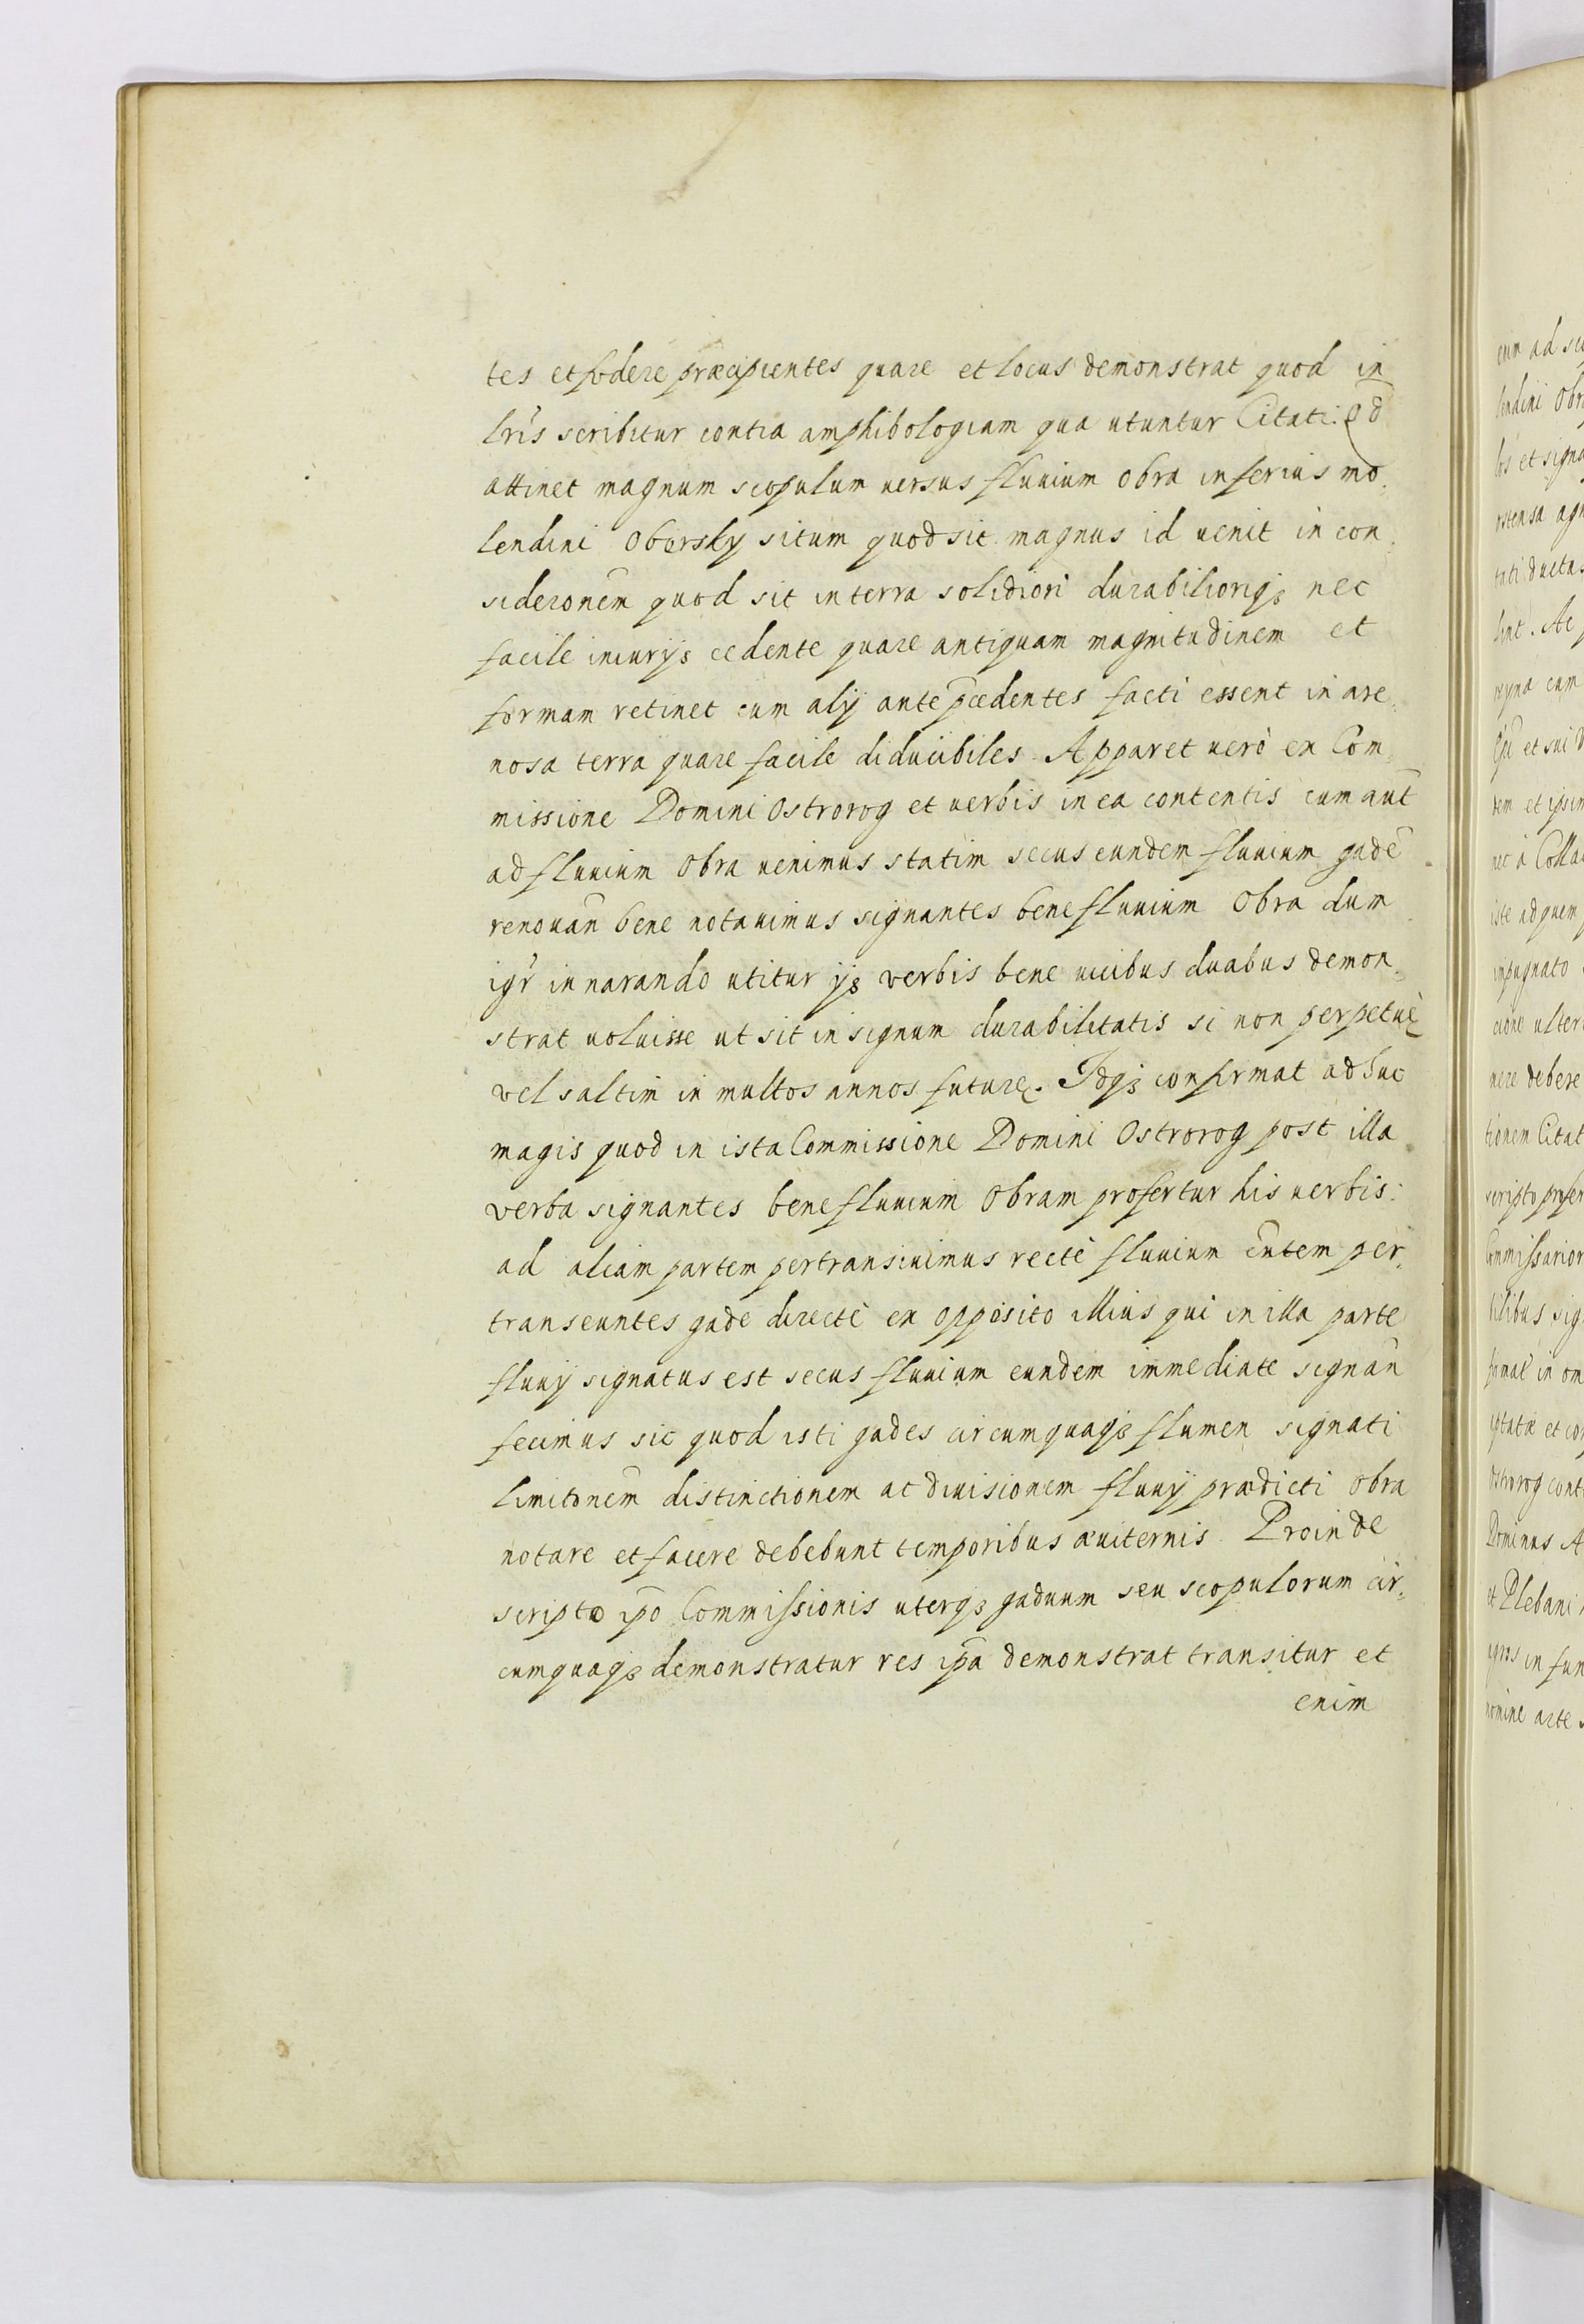 tes et fodere præcipientes quare et locus demonstrat quod in
lr̃is scribitur contra amphibologiam qua utuntur Citati. Qd̃
attinet magnum scopulum versus fluuium Obra inferius mo,
lendini Obersky situm quod sit magnus id uenit in con,
sideroñem quod sit in terra solidiori durabilioriqȝ nec
facile iniurijs cedente quare antiquam magnitudinem et
formam retinet cum alij ante p̃cedentes facti essent in are,
nosa terra quare facile diducibiles. Apparet uerò ex Com,
missione Domini Ostrorog et uerbis in ea contentis cum aut̃
ad fluuium Obra uenimus statim secus eundem fluuium gadẽ
renouañ bene notauimus signantes bene fluuium Obra dum
igr̃ in narando utitur ijs verbis bene uicibus duabus demon,
strat uoluisse ut sit in signum durabilitatis si non perpetuę
vel saltim in multos annos futurę. Idqȝ confirmat adhuc
magis quod in ista Commissione Domini Ostrorog post illa
verba signantes bene fluuium Obram profertur his uerbis:
ad aliam partem pertransiuimus rectè fluuium eũtem per,
transeuntes gade directè ex opposito illius qui in illa parte
fluuij signatus est secus fluuium eundem immediate signañ
fecimus sic quod isti gades circumquaqȝ flumen signati
limitoñem distinctionem ac diuisionem fluuij prædicti Obra
notare et facere debebunt temporibus æuiternis. Proinde
scripto ip̃o Commissionis uterqȝ gaduum seu scopulorum cir,
cumquaqȝ demonstratur res ip̃a demonstrat transitur et
enim